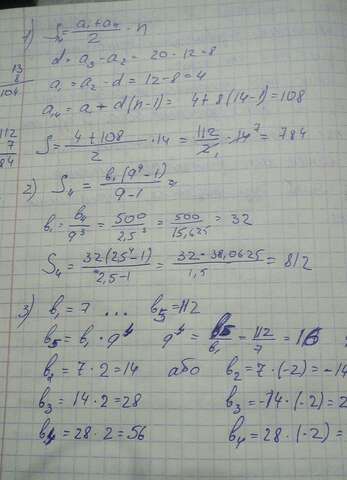 1) Sₙ = (a₁+aₙ)/2 · n
d = a₃ - a₂ = 20 - 12 = 8
13
8
104
a₁ = a₂ - d = 12 - 8 = 4
a₁₄ = a + d(n-1) = 4 + 8(14-1) = 108
112
7
84
S = (4+108)/2 · 14 = 112/2 · 14⁷ = 784
2) S₄ = b₁(q⁴-1)/(q-1) =
b₁ = b₄/q³ = 500/2,5³ = 500/15,625 = 32
S₄ = 32(2,5⁴-1)/(2,5-1) = 32 · 38,0625/1,5 = 812
3) b₁ = 7 ... b₅ = 112
b₅ = b₁ · q⁴ q⁴ = b₅/b₁ = 112/7 = 16
b₂ = 7 · 2 = 14 або b₂ = 7 · (-2) = -14
b₃ = 14 · 2 = 28 b₃ = -14 · (-2) = 2
b₄ = 28 · 2 = 56 b₄ = 28 · (-2) =